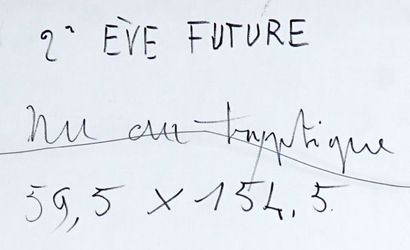 2° ÈVE FUTURE
Nu au tryptique
59,5 × 154,5